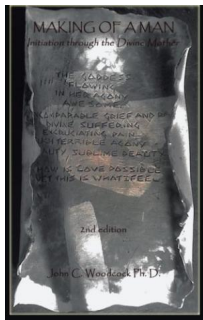 MAKING OF A MAN
Initiation through the Divine Mother
THE GODDESS
FLOWING
IN HER AGONY
AWESOME
GRIEF AND
DIVINE SUFFERING
EXCRUCIATING PAIN
TERRIBLE AGONY
SUBLIME BEAUTY
HOW IS LOVE POSSIBLE
THIS IS WHAT I FEEL
2nd edition
John C. Woodcock Ph. D.